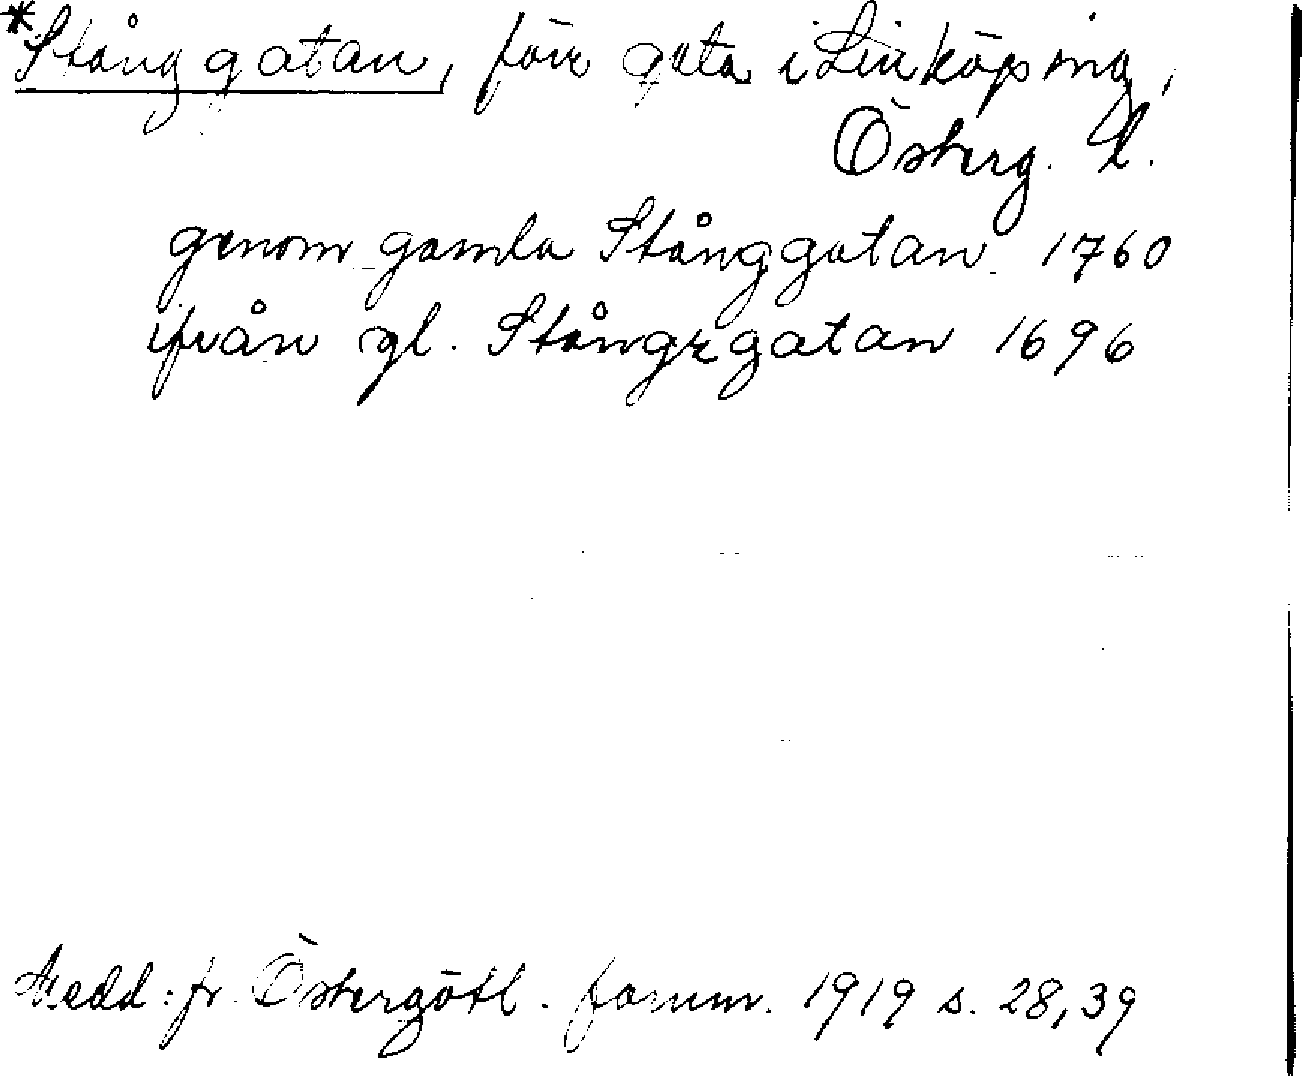 *Stånggatan, förr gata i Linköping,
Österg. l.
genom gamla Stånggatan 1760
ifrån gl. Stångzgatan 1696
Medd. fr. Östergötl. fornm. 1919 s. 28, 39